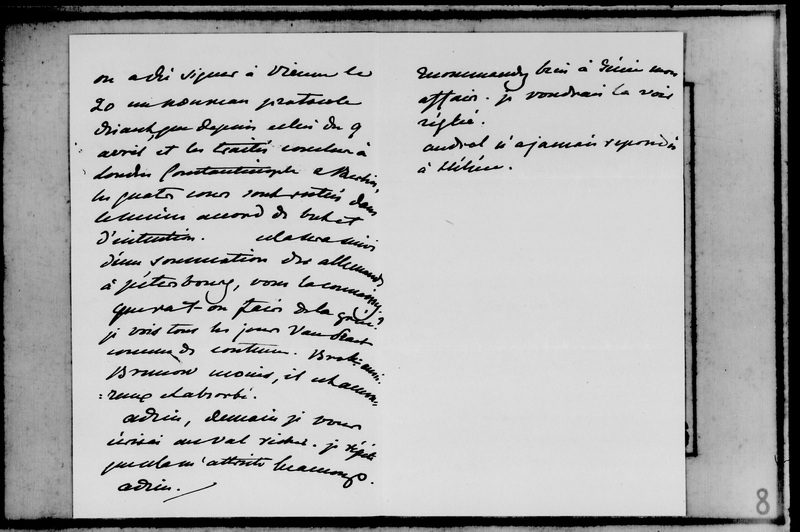 on a dû signer à Vienne le
20 un nouveau protocole
disant que depuis celui du 9
avril, et les traités conclus à
Londres Constantinople & Berlin,
les quatre cours sont restées dans
le même accord de but et
d'intention. cela sera suivi
d'une sommation des allemands
à Pétersbourg, vous la connaissez.
que va t-on faire de la grèce?
je vois tous les jours Van Praet
comme de coutume.
Brunow moins, il est
et absorbé.
adieu, demain je vous
écrirai au Val richer. je répète
que cela m'attriste beaucoup.
adieu.
recommandez bien à Génie mon
affaire. je voudrais la voir
réglée.
andral n'a jamais repondu
à Hélène.
8